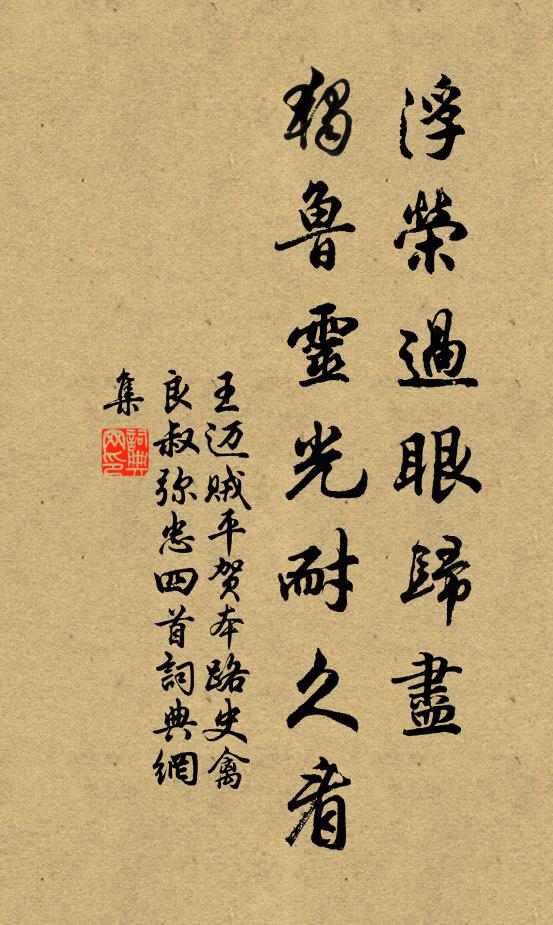 浮榮過眼歸盡
猶魯靈光耐久看
王迈贼平贺本路史禽
良叔弥忠四首詞典網
集
詞典
网印